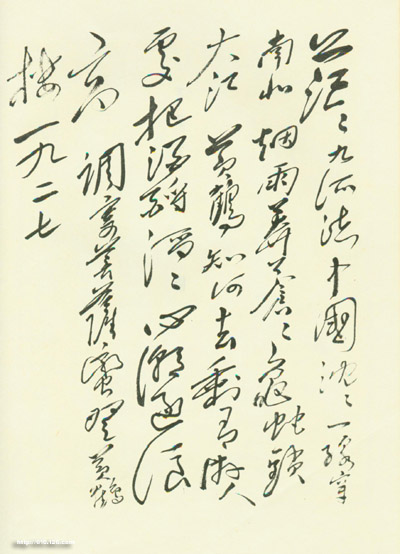 茫〻九派流中國沈〻一綫穿
南北烟雨莽蒼〻龜蛇鎖
大江黃鶴知何去剩有游人
處把酒酹滔〻心潮逐浪
高調寄菩薩蠻登黃鶴
樓一九二七